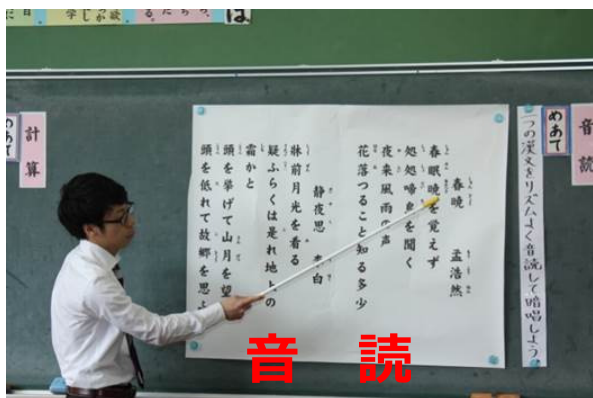 音読
めあて
二つの漢文をリズムよく音読して暗唱しよう。
春暁　孟浩然
春眠暁を覚えず
処処啼鳥を聞く
夜来風雨の声
花落つること知る多少
静夜思　李白
牀前月光を看る
疑ふらくは是れ地上の
霜かと
頭を挙げて山月を望
頭を低れて故郷を思ふ
計算
めあて
は
音　読